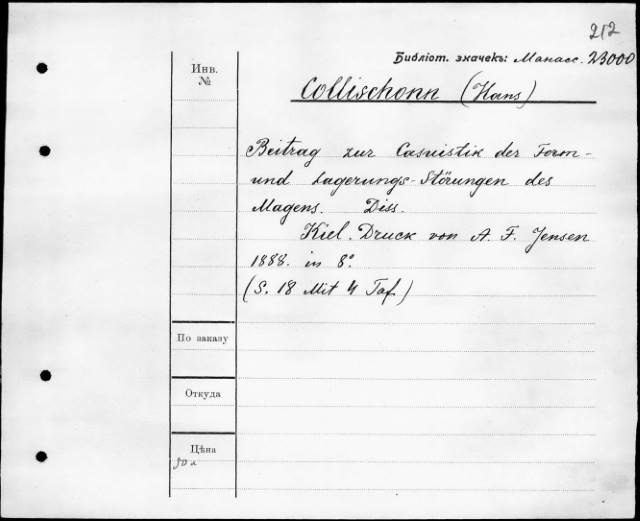 212
Библіот. значекъ: Манасс. 23000
Инв. №
Collischonn (Hans)
Beitrag zur Casuistik der Form-
und Lagerungs-Störungen des
Magens. Diss.
Kiel. Druck von A. F. Jensen
1888. in 8°.
(S. 18 Mit 4 Taf.)
По заказу
Откуда
Цѣна